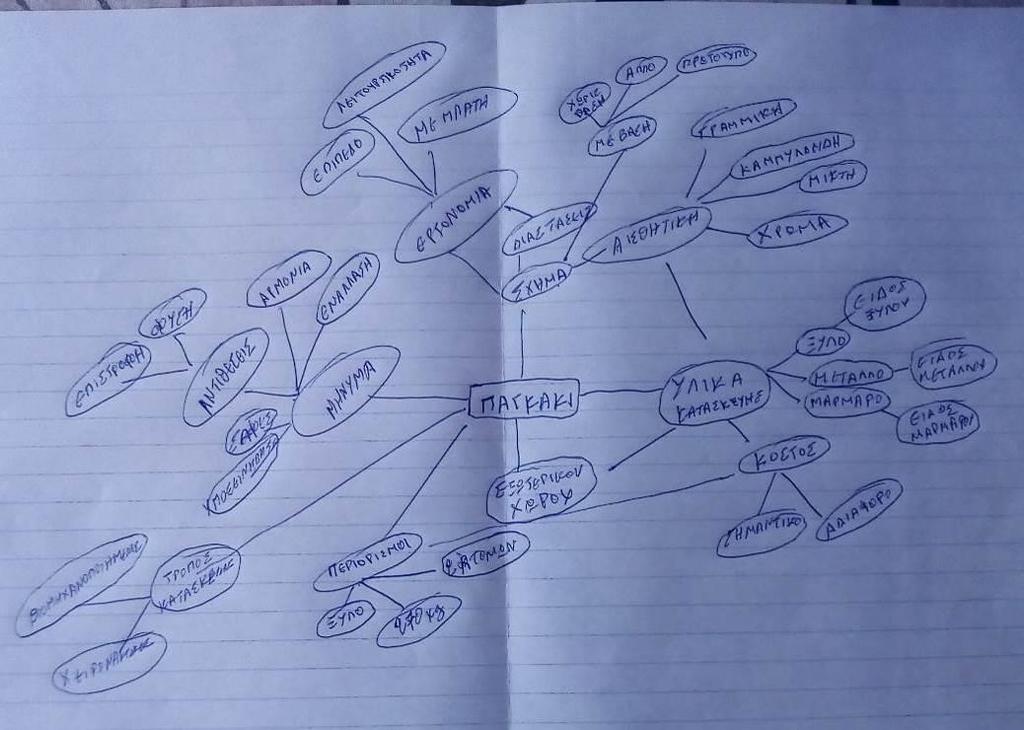 ΛΕΙΤΟΥΡΓΙΚΟΤΗΤΑ
ΜΕ ΠΛΑΤΗ
ΕΠΙΠΕΔΟ
ΕΡΓΟΝΟΜΙΑ
ΧΩΡΙΣ
ΒΑΣΗ
ΑΠΛΟ
ΠΡΩΤΟΤΥΠΟ
ΜΕ ΒΑΣΗ
ΓΡΑΜΜΙΚΗ
ΚΑΜΠΥΛΩΔΗ
ΜΙΚΤΗ
ΧΡΩΜΑ
ΑΙΣΘΗΤΙΚΗ
ΔΙΑΣΤΑΣΕΙΣ
ΣΧΗΜΑ
ΑΡΜΟΝΙΑ
ΕΝΑΛΛΑΓΗ
ΦΥΓΗ
ΕΠΙΣΤΡΟΦΗ
ΑΝΤΙΘΕΣΕΙΣ
ΜΗΝΥΜΑ
ΣΑΦΕΣ
ΠΑΓΚΑΚΙ
ΥΛΙΚΑ
ΚΑΤΑΣΚΕΥΗΣ
ΞΥΛΟ
ΕΙΔΟΣ
ΞΥΛΟΥ
ΜΕΤΑΛΛΟ
ΕΙΔΟΣ
ΜΕΤΑΛΛΟΥ
ΜΑΡΜΑΡΟ
ΕΙΔΟΣ
ΜΑΡΜΑΡΟΥ
ΚΟΣΤΟΣ
ΣΗΜΑΝΤΙΚΟ
ΑΔΙΑΦΟΡΟ
ΕΞΩΤΕΡΙΚΟΥ
ΧΩΡΟΥ
ΠΕΡΙΟΡΙΣΜΟΙ
2 ΑΤΟΜΩΝ
ΞΥΛΟ
ΤΡΟΠΟΣ
ΚΑΤΑΣΚΕΥΗΣ